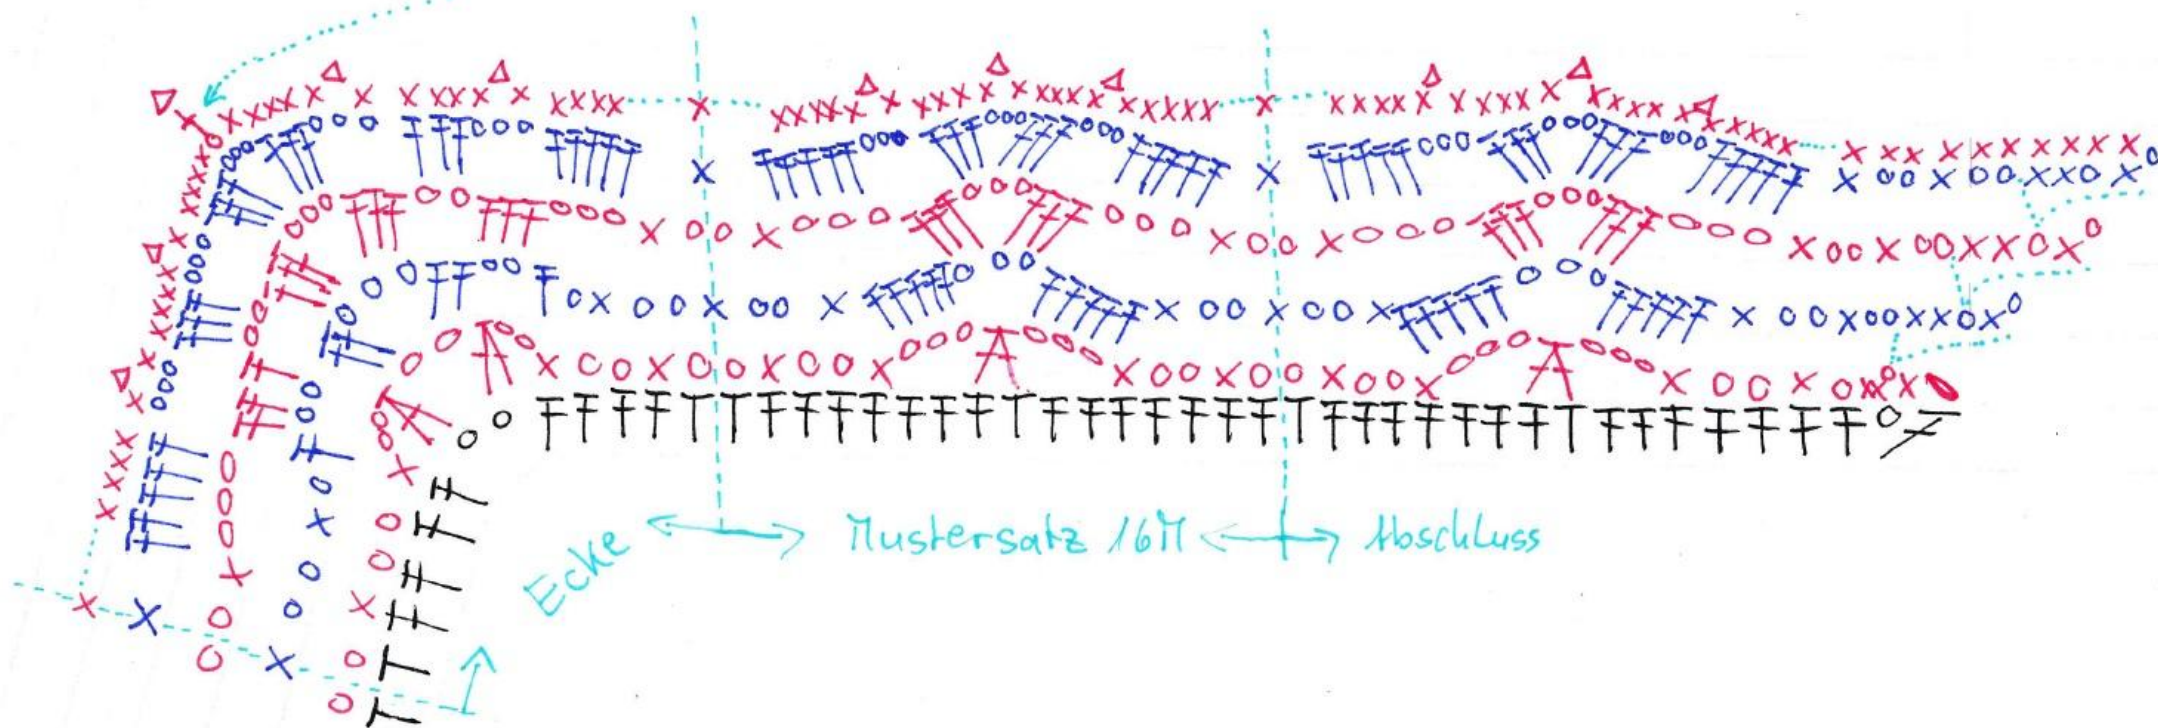 Ecke
Mustersatz 16M
Abschluss